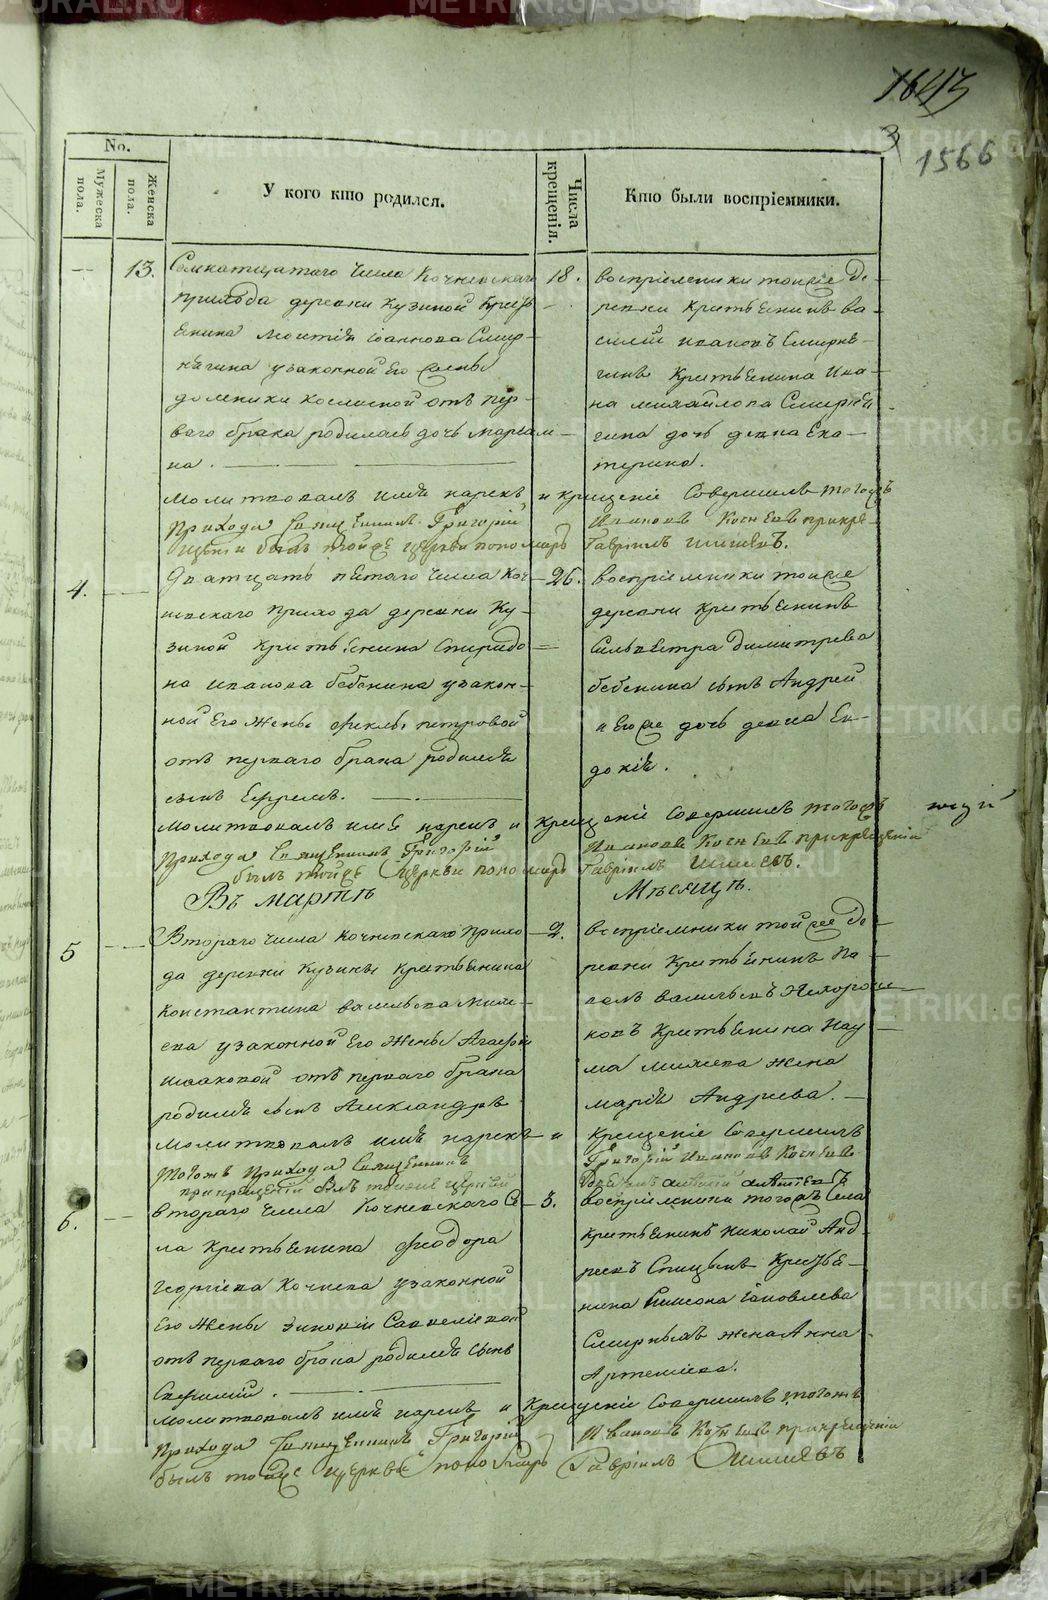 1643
3
1566
No.
Мужеска пола.
Женска пола.
У кого кто родился.
Числа крещенія.
Кто были воспріемники.
13. 18.
прихода деревни Кузиной Кресть-
янина Іоаннова Смир-
нягина узаконной Его жены
от пер-
ваго брака родилась дочь Мариам-
на.
воспріемники тойже де-
ревни крестьянинъ Ва-
силій Ивановъ Смирня-
гинъ крестьянина Ива-
на Михайлова Смирняги
гина дочь девка Ека-
терина.
Молитвовалъ имя нарекъ и крещеніе Совершилъ тогожъ
Прихода Священникъ Григорій Ивановъ Косневъ прикре-
щеніи былъ тойже церкви пономарь Гавріилъ Шишевъ.
4. Дватцать пятаго числа Коч-
невскаго прихода деревни Ку-
зиной крестьянина Спиридо-
на Иванова Бебенина узакон-
ной Его жены Феклы Петровой
отъ перваго брака родился
сынъ Ефремъ.
26. воспріемники тойже
деревни крестьянинъ
Сильвестра Димитрева
Бебенина сынъ Андрей
и Егоже дочь девка Ев-
докія.
Молитвовалъ имя нарекъ и крещеніе Совершилъ тогожъ
Прихода Священникъ Григорій Ивановъ Косневъ прикрещеніи
былъ тойже Церкви пономарь Гавріилъ Шишевъ.
Въ Мартѣ Мѣсяцѣ.
5 Втораго числа Кочневскаго Прихо-
да деревни Кузины крестьянина
Константина Васильева
узаконной Его жены Агафьи
Исааковой отъ перваго брака
родился сынъ Александръ
2. воспріемники тойже де-
ревни крестьянинъ Па-
велъ Васильевъ
ковъ крестьянина Нау-
ма жена
Марія Андреева.
Молитвовалъ имя нарекъ и крещеніе Совершилъ
тогожъ прихода Священникъ Григорій Ивановъ Косневъ
прикрещеніи былъ тойже церкви
6. втораго числа Кочневскаго Се-
ла крестьянина Феодора
Георгіева Кочнева узаконной
Его жены Зиновіи Савельевой
отъ перваго брака родился сынъ
3. воспріемники тогожъ Села
крестьянинъ Николай Анд-
реевъ Спицынъ Крестья-
нина Симеона Яковлева
Смирныхъ жена Анна
Артемьева.
Молитвовалъ имя нарекъ и Крещеніе Совершилъ тогожъ
Прихода Священникъ Григорій Ивановъ Косневъ прикрещеніи
былъ тойже церкви пономарь Гавріилъ Шишевъ
METRIKI.GASO-URAL.RU